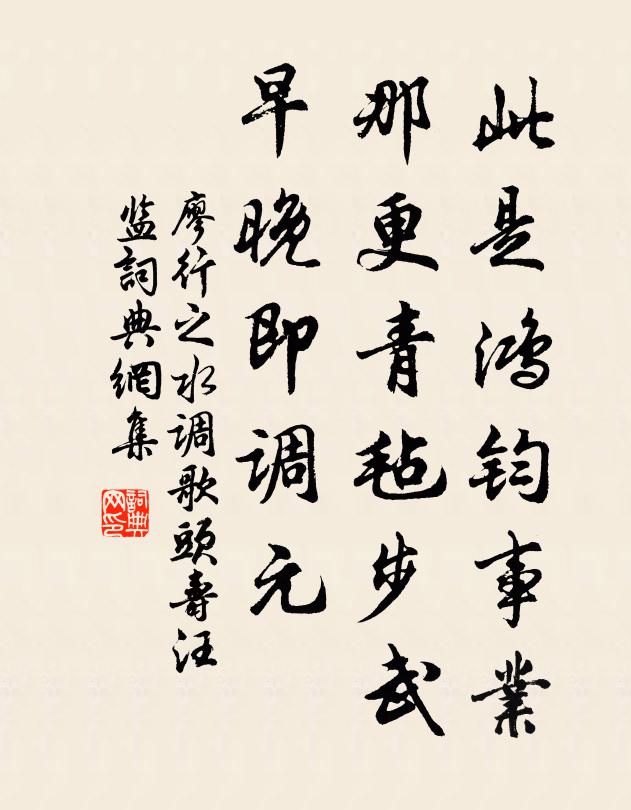 此是鸿钧事業
那更青毡步武
早晚即调元
廖行之水调歌頭壽汪
监詞典網集
詞典网印